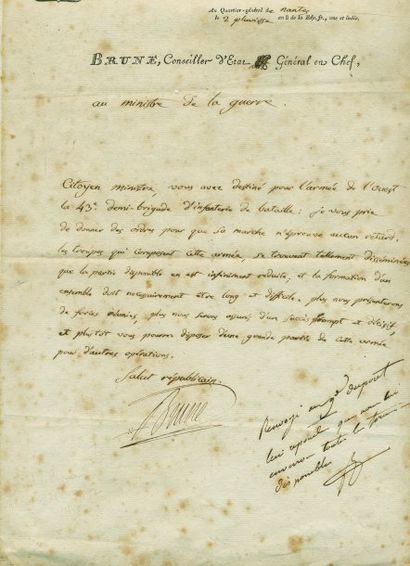 Au Quartier-général de Nantes
le 2 pluviose an 8 de la Rép. fr., une et indiv.
BRUNE, Conseiller d'Etat, Général en Chef,
au ministre de la guerre.
Citoyen ministre, vous avez destiné pour l'armée de l'ouest
la 43e demi-brigade d'infanterie de bataille: je vous prie
de donner des ordres pour que sa marche n'éprouve aucun retard.
les troupes qui composent cette armée, se trouvent tellement disséminées
que la partie disponible en est infiniment réduite; et la formation d'un
ensemble doit nécessairement être long et difficile. plus nous présenterons
de forces réunies, plus nous serons assurés d'un succès prompt et décisif,
et plutôt vous pourrez disposer d'une grande partie de cette armée
pour d'autres opérations.
Salut républicain.
Brune
Renvoyé au gl dupont
lui répondre que
toute la
disponible